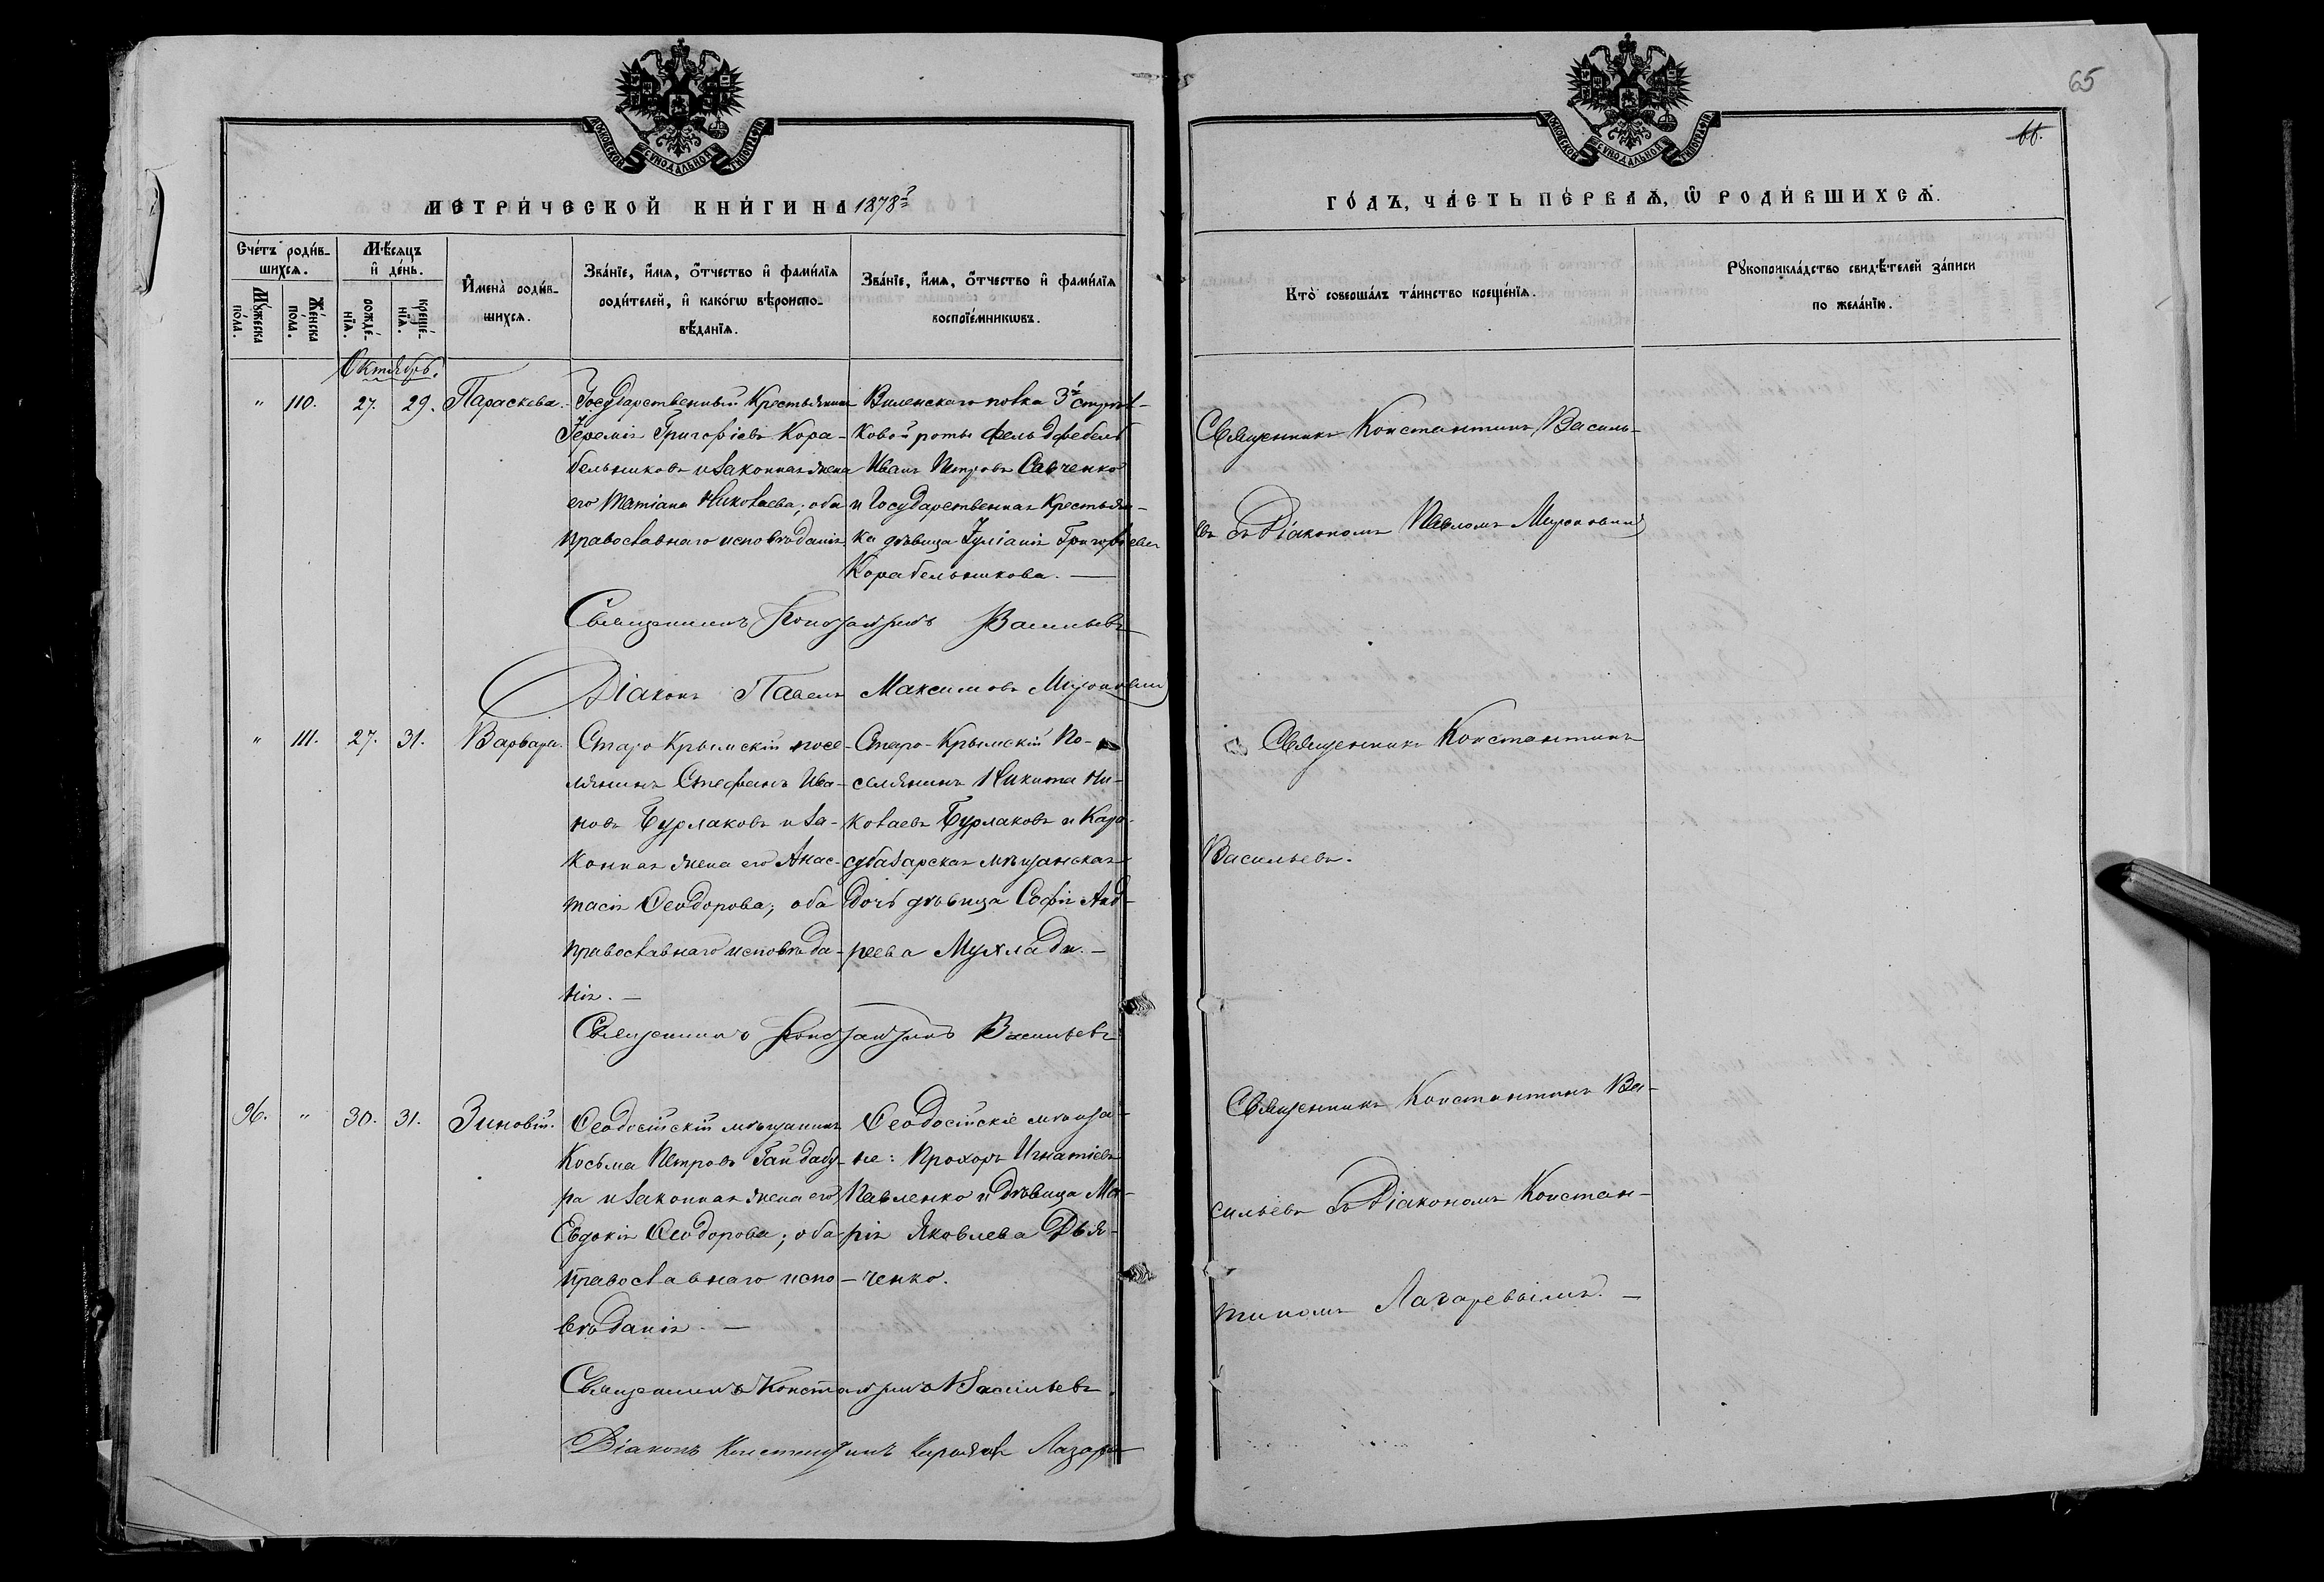 65
66.
МОСКОВСКОЙ СѴНОДАЛЬНОЙ ТИПОГРАФІИ
МОСКОВСКОЙ СѴНОДАЛЬНОЙ ТИПОГРАФІИ
МЕТРИ́ЧЕСКОЙ КНИ́ГИ НА 1878й
ГО́ДЪ, ЧА́СТЬ ПЕ́РВАѦ, Ѿ РОДИ́ВШИХСѦ.
Сче́тъ роди́в-
шихсѧ.
Мꙋ́жеска по́ла.
Же́нска по́ла.
Мѣ́сѧцъ и҆ де́нь.
рожде́-нїѧ.
креще́-нїѧ.
И҆мена̀ роди́в-
шихсѧ.
Зва́нїе, и҆́мѧ, ѻ҆́тчество и҆ фами́лїѧ
роди́телей, и҆ како́гѡ вѣроиспо-
вѣ́данїѧ.
Зва́нїе, и҆́мѧ, ѻ҆́тчество и҆ фами́лїѧ
воспрїе́мникѡвъ.
Кто̀ соверша́лъ та́инство креще́нїѧ.
Рꙋкоприкла́дство свидѣ́телей за́писи
по жела́нїю.
Октябрь.
" 110. 27. 29. Параскева.
Государственный Крестьянинъ
Іеремія Григоріевъ Кора-
бельниковъ и законная жена
его Татіана Николаева; оба
православнаго исповѣданія.
Виленскаго полка 3й стрѣл-
ковой роты фельдфебель
Иванъ Петровъ Савченко
и Государственная Крестьян-
ка дѣвица Іуліанія Григоріева
Корабельникова. —
Священникъ Константинъ Василь-
евъ съ Діакономъ Павломъ
Священникъ Константинъ Васильевъ
Діаконъ Павелъ Максимовъ
" 111. 27. 31. Варвара.
Старо Крымскій посе-
лянинъ Стефанъ Ива-
новъ Бурлаковъ и за-
конная жена его Анас-
тасія Ѳеодорова; оба
православнаго исповѣда-
нія. —
Старо-Крымскій По-
селянинъ Никита Ни-
колаевъ Бурлаковъ и Кара-
субазарская мѣщанская
дочь дѣвица Софія Анд-
реева Мухлади. —
Священникъ Константинъ
Васильевъ.
Священникъ Константинъ Васильевъ
96. " 30. 31. Зиновій.
Ѳеодосійскій мѣщанинъ
Косьма Петровъ Гайдабу-
ра и законная жена его
Евдокія Ѳеодорова; оба
православнаго испо-
вѣданія. —
Ѳеодосійскіе мѣща-
не: Прохоръ Игнатіевъ
Павленко и дѣвица Ма-
рія Яковлева Дья-
ченко.
Священникъ Константинъ Ва-
сильевъ съ Діакономъ Констан-
тиномъ Лазаревымъ. —
Священникъ Константинъ Васильевъ.
Діаконъ Константинъ Лазаревъ